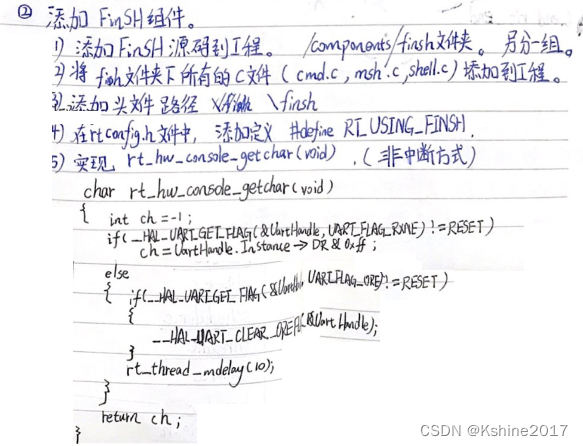 ② 添加 FinSH 组件。
1) 添加 FinSH 源码到工程。 /components/finsh文件夹。 另分一组。
2) 将 finsh文件夹下所有的C文件 ( cmd.c , msh.c ,shell.c) 添加到工程。
3) 添加头文件路径 \finsh
4) 在rtconfig.h文件中, 添加定义 #define RT_USING_FINSH.
5) 实现 rt_hw_console_getchar(void) . (非中断方式)
char rt_hw_console_getchar(void)
{ int ch = -1 ;
if( __HAL_UART_GET_FLAG(&UartHandle, UART_FLAG_RXNE) != RESET)
ch = UartHandle.Instance -> DR & 0xff ;
else
{ if(__HAL_UART_GET_FLAG( &UartHandle, UART_FLAG_ORE) != RESET)
{
__HAL_UART_CLEAR_OREFLAG(&UartHandle);
}
rt_thread_mdelay(10);
}
return ch ;
}
CSDN @Kshine2017